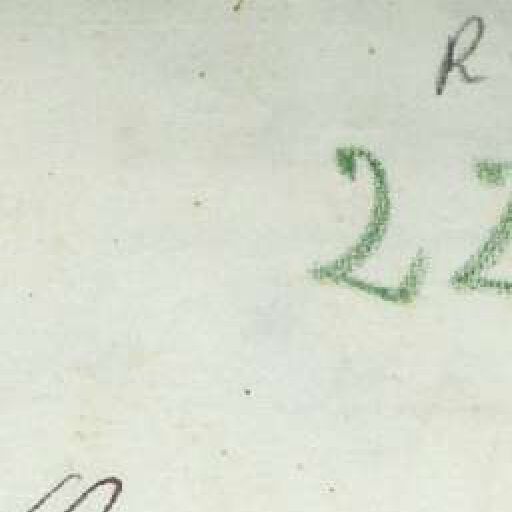 R
22